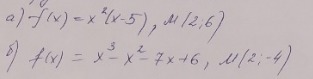 а) f(x) = x²(x-5), M(2;6)
б) f(x) = x³-x²-7x+6, M(2;-4)